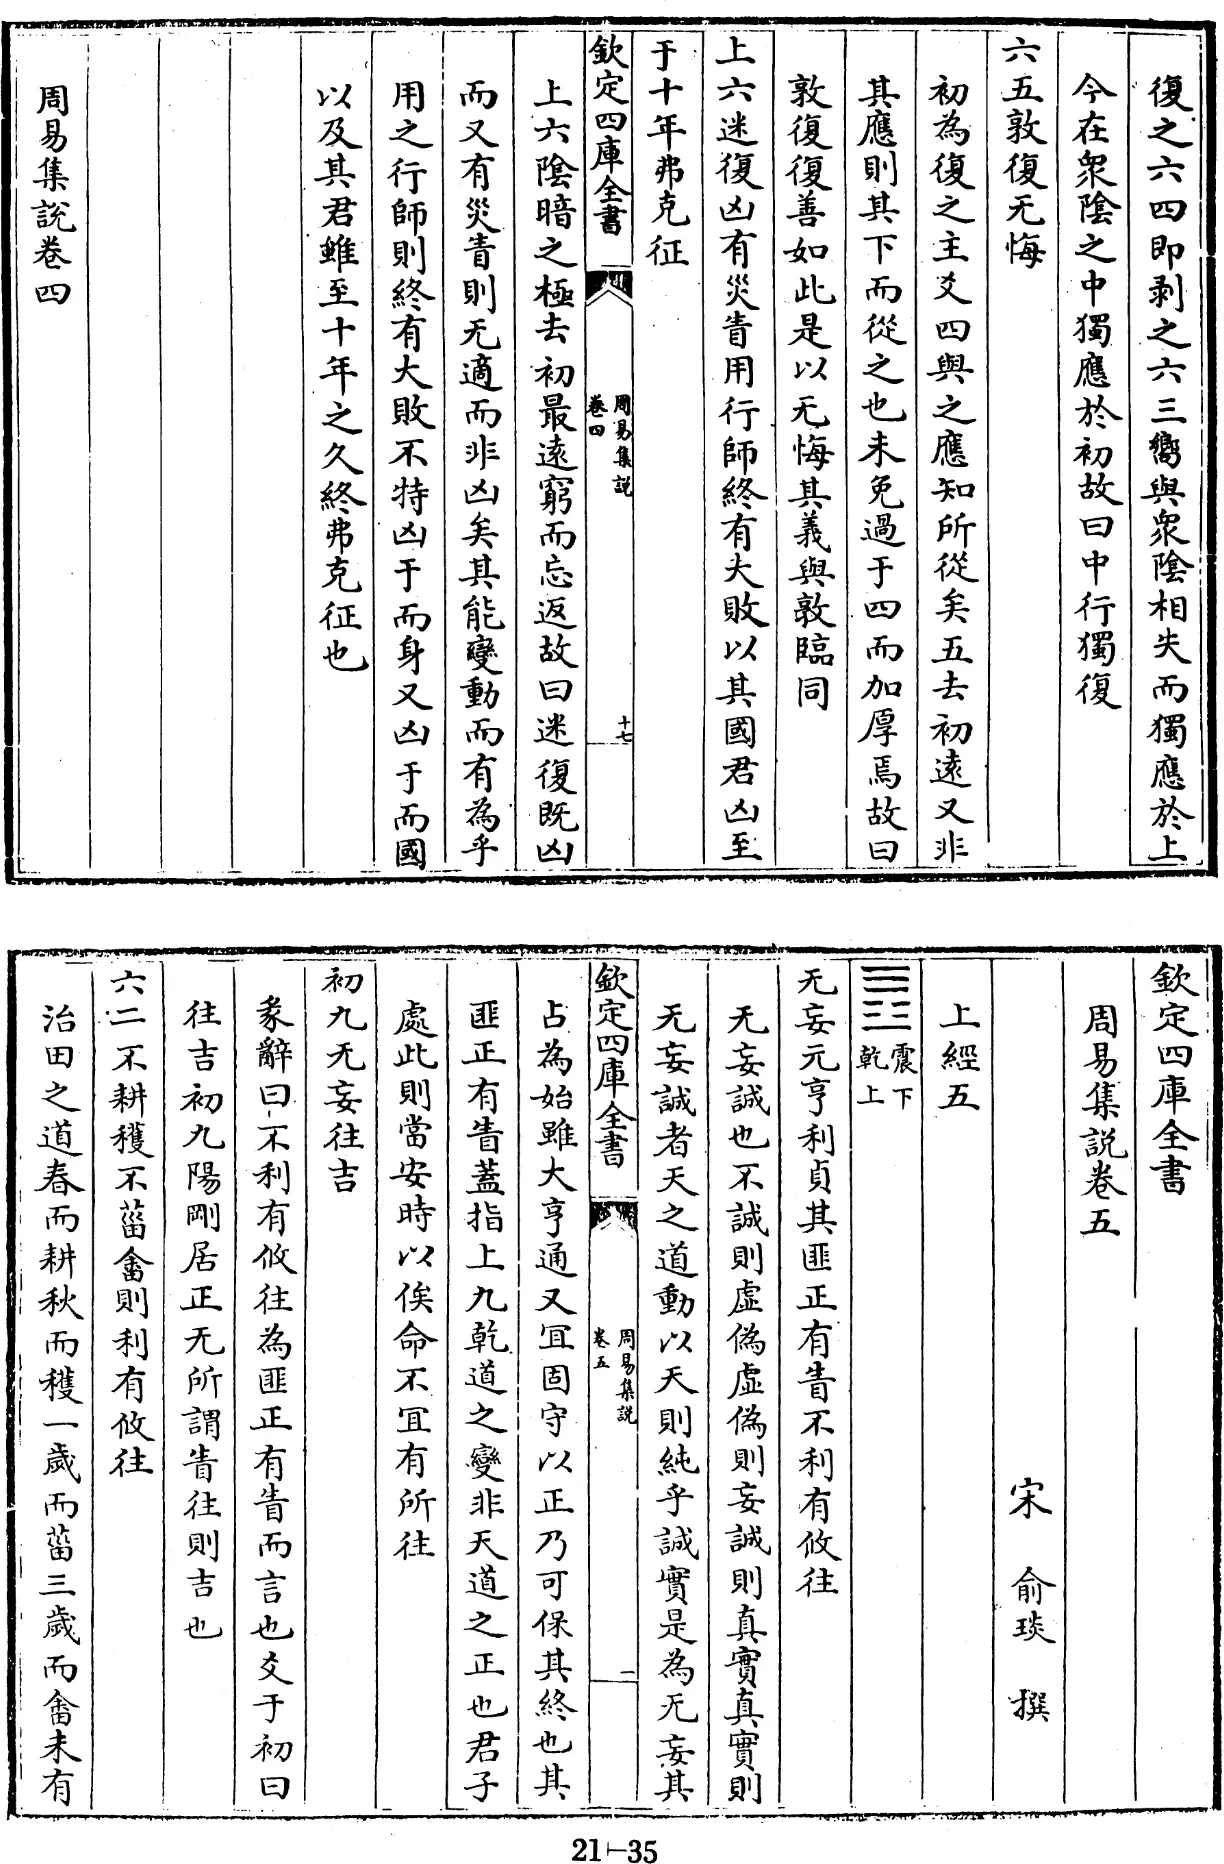 復之六四即剥之六三嚮與衆陰相失而獨應於上
今在衆陰之中獨應於初故曰中行獨復
六五敦復无悔
初為復之主爻四與之應知所從矣五去初逺又非
其應則其下而從之也未免過于四而加厚焉故曰
敦復復善如此是以无悔其義與敦臨同
上六迷復凶有災眚用行師終有大敗以其國君凶至
于十年弗克征
欽定四庫全書
周易集說
卷四
十七
上六陰暗之極去初最逺窮而忘返故曰迷復既凶
而又有災眚則无適而非凶矣其能變動而有為乎
用之行師則終有大敗不特凶于而身又凶于而國
以及其君雖至十年之久終弗克征也
周易集說卷四
欽定四庫全書
周易集說卷五
宋 俞琰 撰
上經五
䷘ 震下
乾上
无妄元亨利貞其匪正有眚不利有攸往
无妄誠也不誠則虛偽虛偽則妄誠則真實真實則
无妄誠者天之道動以天則純乎誠實是為无妄其
欽定四庫全書
周易集說
卷五
一
占為始雖大亨通又宜固守以正乃可保其終也其
匪正有眚蓋指上九乾道之變非天道之正也君子
處此則當安時以俟命不宜有所往
初九无妄往吉
彖辭曰不利有攸往為匪正有眚而言也爻于初曰
往吉初九陽剛居正无所謂眚往則吉也
六二不耕穫不菑畬則利有攸往
治田之道春而耕秋而穫一歲而菑三歲而畬未有
21-35